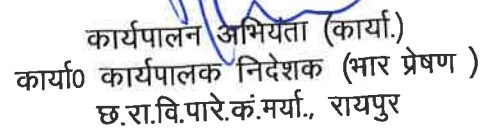 कार्यपालन अभियंता (कार्या.)
कार्या0 कार्यपालक निदेशक (भार प्रेषण )
छ.रा.वि.पारे.कं.मर्या., रायपुर